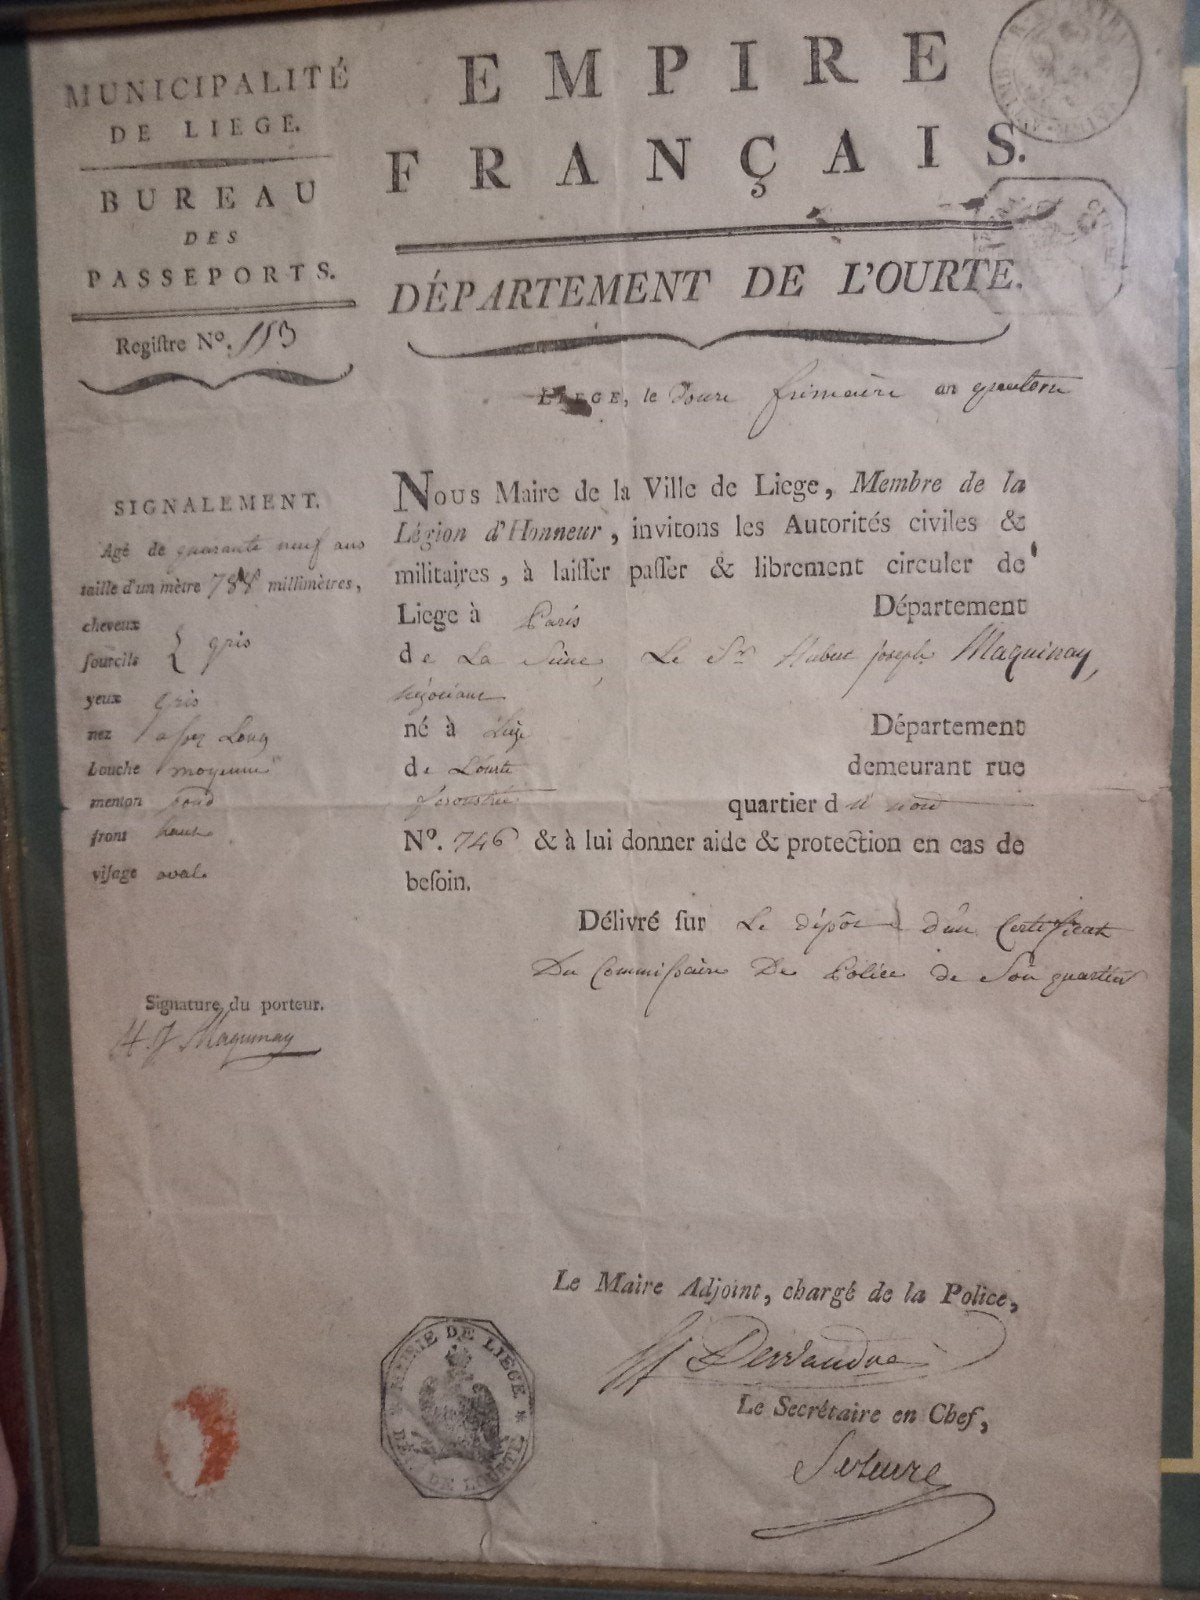 MUNICIPALITÉ
DE LIEGE.
BUREAU
DES
PASSEPORTS.
Regiſtre Nº. 113
EMPIRE
FRANÇAIS.
DÉPARTEMENT DE L'OURTE.
LIEGE, le Douze frimaire an quatorze
SIGNALEMENT.
Agé de quarante neuf ans
taille d'un mètre 788 millimètres,
cheveux
ſourcils } gris
yeux gris
nez aſsez Long
bouche moyenne
menton rond
front haut
viſage oval
Signature du porteur.
H. J Maquinay
NOUS Maire de la Ville de Liege, Membre de la
Légion d'Honneur, invitons les Autorités civiles &
militaires, à laiſſer paſſer & librement circuler de
Liege à Paris Département
de La Seine, Le Sr Hubert joseph Maquinay,
négociant
né à Liège Département
de L'ourte demeurant rue
quartier d u nord
Nº. 746 & à lui donner aide & protection en cas de
beſoin.
Délivré ſur Le dépôt d'un Certificat
Du Commiſsaire De Police de Son quartier
Le Maire Adjoint, chargé de la Police,
Le Secrétaire en Chef,
MAIRIE DE LIEGE.
DÉP. DE L'OURTE